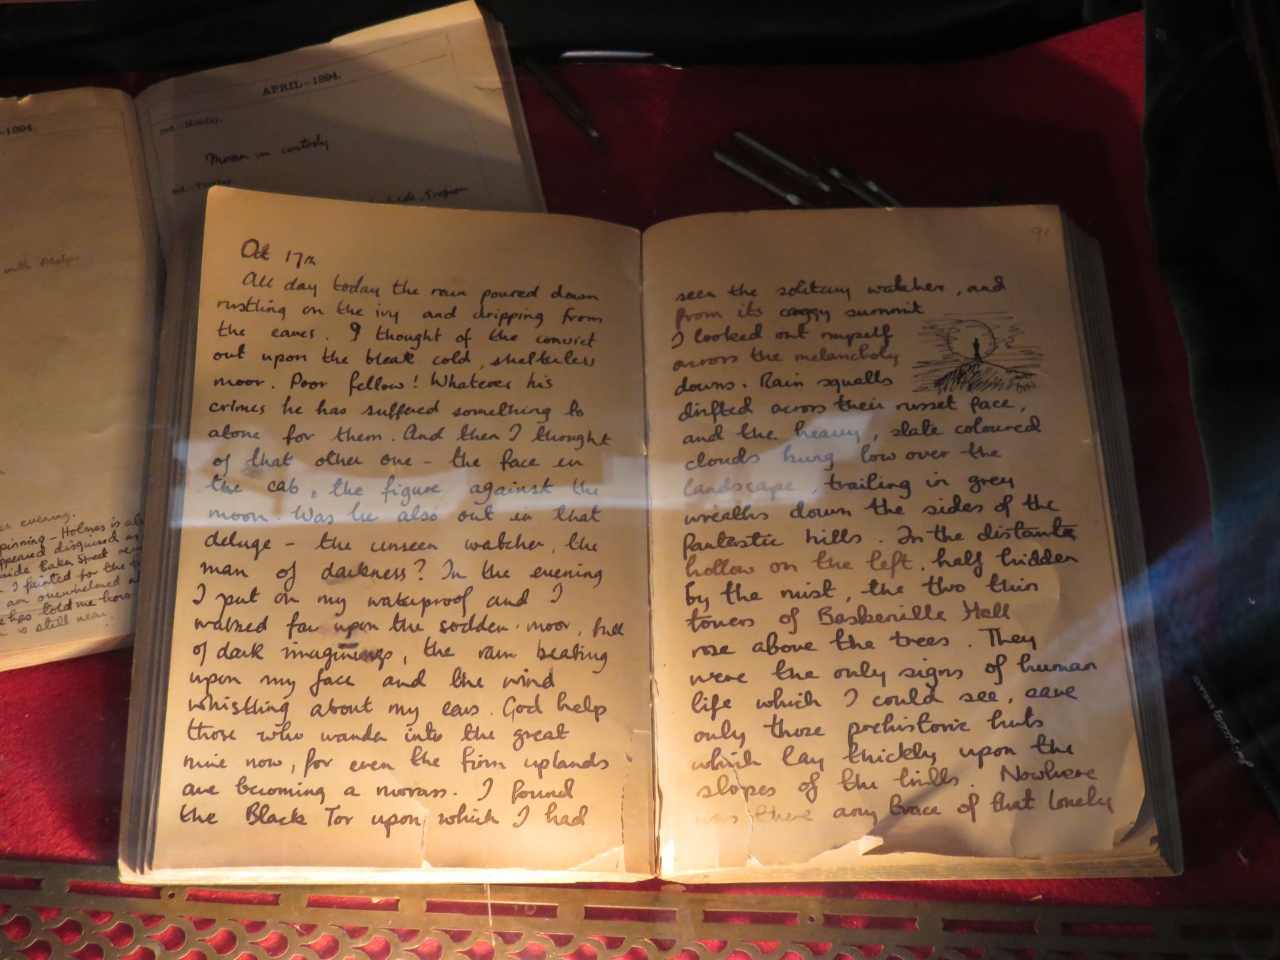 -1894.
APRIL-1894.
2nd.-Monday.
Moran in custody
with Phelps.
evening.
spinning - Holmes is al
appeared disguised as
side Baker Street
I fainted for the
I am overwhelmed
has told me how
is still near.
Oct 17th
All day today the rain poured down
rustling on the ivy and dripping from
the eaves. I thought of the convict
out upon the bleak cold, shelterless
moor. Poor fellow! Whatever his
crimes he has suffered something to
atone for them. And then I thought
of that other one - the face in
the cab, the figure against the
moon. Was he also out in that
deluge - the unseen watcher, the
man of darkness? In the evening
I put on my waterproof and I
walked far upon the sodden moor, full
of dark imaginings, the rain beating
upon my face and the wind
whistling about my ears. God help
those who wander into the great
mire now, for even the firm uplands
are becoming a morass. I found
the Black Tor upon which I had
91
seen the solitary watcher, and
from its craggy summit
I looked out myself
across the melancholy
downs. Rain squalls
drifted across their russet face,
and the heavy, slate coloured
clouds hung low over the
landscape, trailing in grey
wreaths down the sides of the
fantastic hills. In the distant
hollow on the left, half hidden
by the mist, the two thin
towers of Baskerville Hall
rose above the trees. They
were the only signs of human
life which I could see, save
only those prehistoric huts
which lay thickly upon the
slopes of the hills. Nowhere
was there any trace of that lonely